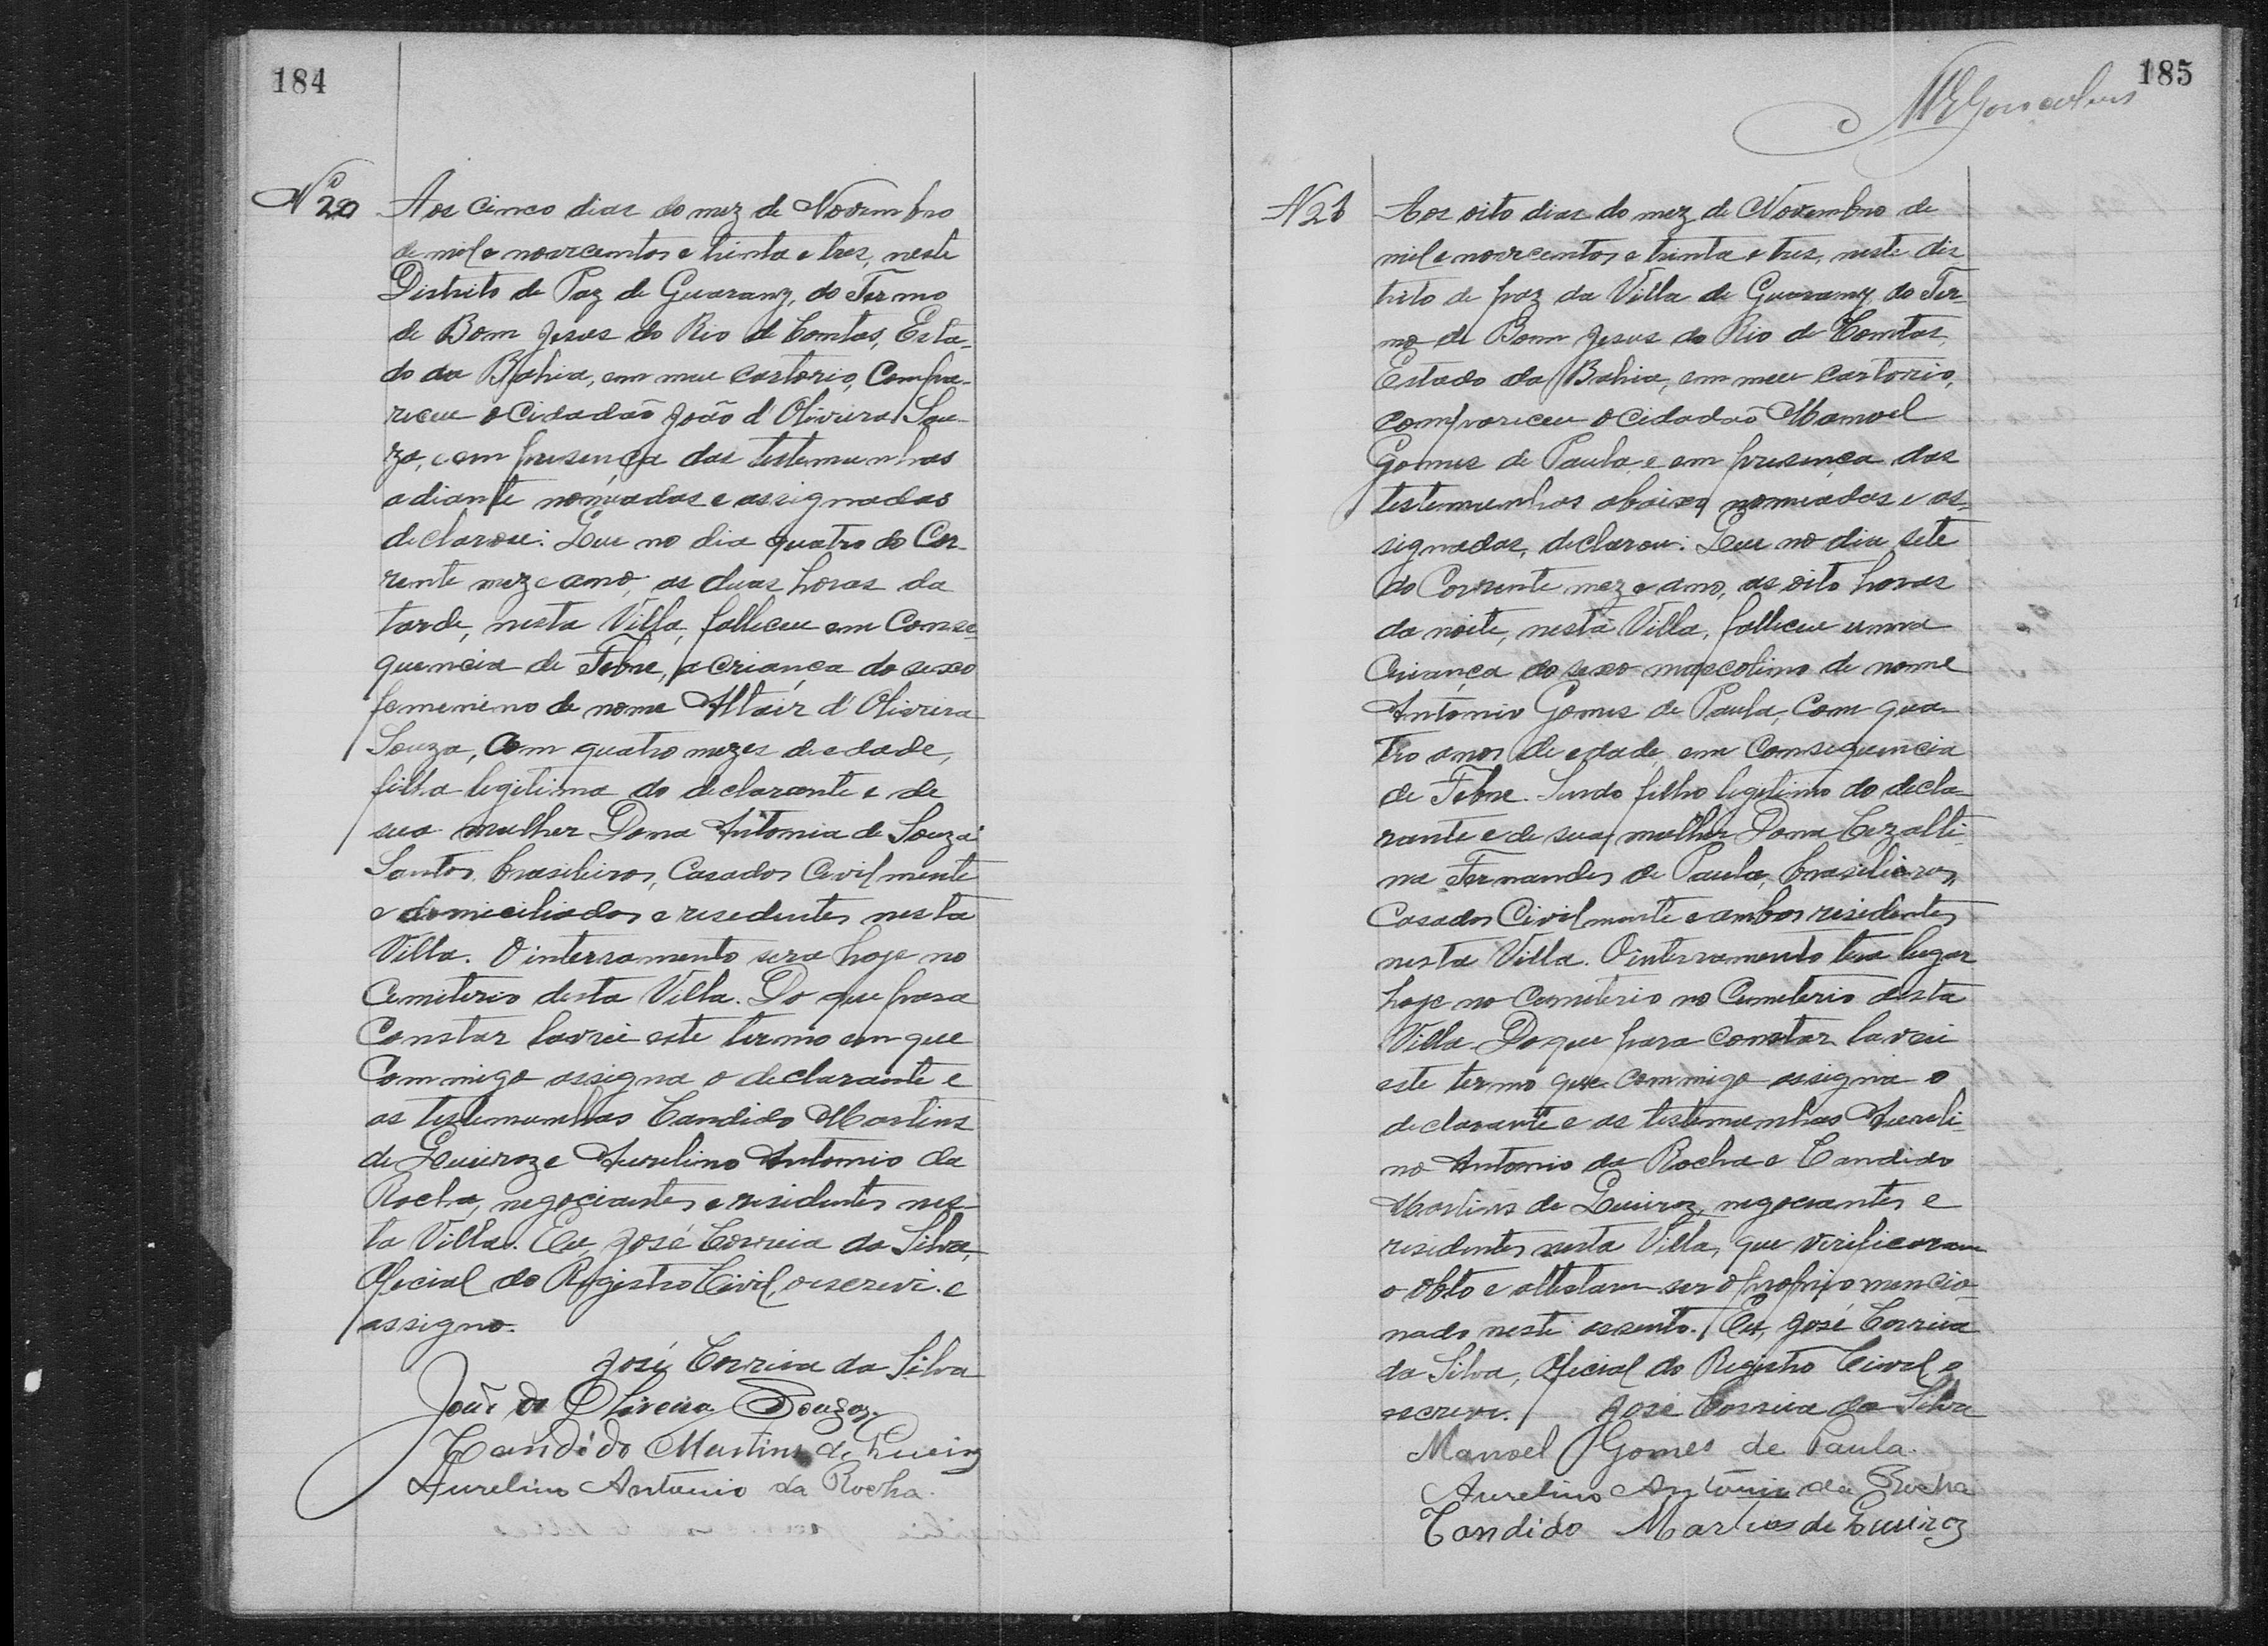 184
Nº 20
Aos cinco dias do mez de Novembro
de mil e novecentos e trinta e tres, neste
Districto de Paz de Guarany, do Termo
de Bom Jesus do Rio de Contas, Esta-
do da Bahia, em meu cartorio, Compa-
receu o Cidadão João d'Oliveira Sou-
za, e em presença das testemunhas
adiante nomeadas e assignadas
declarou: Que no dia quatro do Cor-
rente mez e anno, as duas horas da
tarde, nesta Villa, falleceu em Conse-
quencia de Febre, a criança do sexo
femenino de nome Altair d'Oliveira
Souza, Com quatro mezes de edade,
filha legitima do declarante e de
sua mulher Dona Antonia de Souza
Santos, brasileiros, Casados Civilmente
e domiciliados e residentes nesta
Villa. O interramento sera hoje no
Cemiterio desta Villa. Do que para
Constar lavrei este termo em que
Commigo assigna o declarante e
as testemunhas Candido Martins
de Queiroz e Aurelino Antonio da
Rocha, negociantes e residentes nes-
ta Villa. Eu, José Correia da Silva,
Oficial do Registro Civil, o escrevi e
assigno.
José Correia da Silva
João de Oliveira Souza
Candido Martins de Queiroz
Aurelino Antonio da Rocha.
185
Gonçalves
N 21
Aos oito dias do mez de Novembro de
mil e novecentos e trinta e tres, neste dis
trito de paz da Villa de Guarany do Ter-
mo de Bom Jesus do Rio de Contas,
Estado da Bahia, em meu cartorio,
compareceu o cidadão Manoel
Gomes de Paula e em presença das
testemunhas abaixo nomeadas e as-
signadas, declarou: Que no dia sete
do Corrente mez e ano, as oito horas
da noite, nesta Villa, falleceu uma
Criança do sexo mascolino de nome
Antonio Gomes de Paula, Com qua-
tro anos de edade, em Consequencia
de Febre. Sendo filho legitimo do decla-
rante e de sua mulher Dona Cezalti-
na Fernandes de Paula, brasileiros,
Casados Civilmente e ambos residentes
nesta Villa. O interramento tera lugar
hoje no Cemiterio no Cemeterio desta
Villa. Do que para constar lavrei
este termo que commigo assigna o
declarante e as testemunhas Aureli-
no Antonio da Rocha e Candido
Martins de Queiroz, negociantes e
residentes nesta Villa, que verificaram
o obto e attestam ser o proprio mencio-
nado neste assento. Eu, José Correia
da Silva, Oficial do Registro Civel, o
escrevi. José Correia da Silva
Manoel Gomes de Paula.
Aurelino Antonio da Rocha
Candido Martins de Queiroz